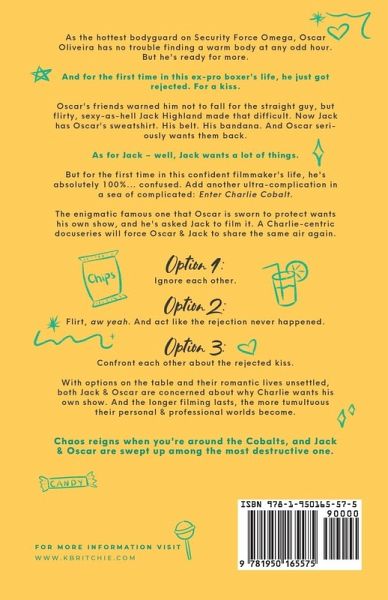 As the hottest bodyguard on Security Force Omega, Oscar
Oliveira has no trouble finding a warm body at any odd hour.
But he's ready for more.
And for the first time in this ex-pro boxer's life, he just got
rejected. For a kiss.
Oscar's friends warned him not to fall for the straight guy, but
flirty, sexy-as-hell Jack Highland made that difficult. Now Jack
has Oscar's sweatshirt. His belt. His bandana. And Oscar seri-
ously wants them back.
As for Jack – well, Jack wants a lot of things.
But for the first time in this confident filmmaker's life, he's
absolutely 100%... confused. Add another ultra-complication in
a sea of complicated: Enter Charlie Cobalt.
The enigmatic famous one that Oscar is sworn to protect wants
his own show, and he's asked Jack to film it. A Charlie-centric
docuseries will force Oscar & Jack to share the same air again.
Chips
Option 1:
Ignore each other.
Option 2:
Flirt, aw yeah. And act like the rejection never happened.
Option 3:
Confront each other about the rejected kiss.
With options on the table and their romantic lives unsettled,
both Jack & Oscar are concerned about why Charlie wants his
own show. And the longer filming lasts, the more tumultuous
their personal & professional worlds become.
Chaos reigns when you're around the Cobalts, and Jack
& Oscar are swept up among the most destructive one.
CANDY
FOR MORE INFORMATION VISIT
WWW.KBRITCHIE.COM
ISBN 978-1-950165-57-5
90000
9 781950 165575